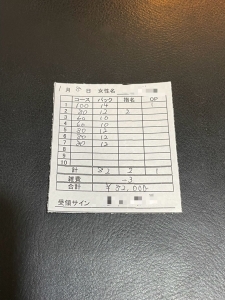 1月 日 女性名
コース バック 指名 OP
1 100 14 1
2 80 12 2
3 60 10
4 60 10
5 80 12
6 80 12
7 80 12
8
9
10
計 82 2 1
雑費 -3
合計 ¥82,000-
受領サイン